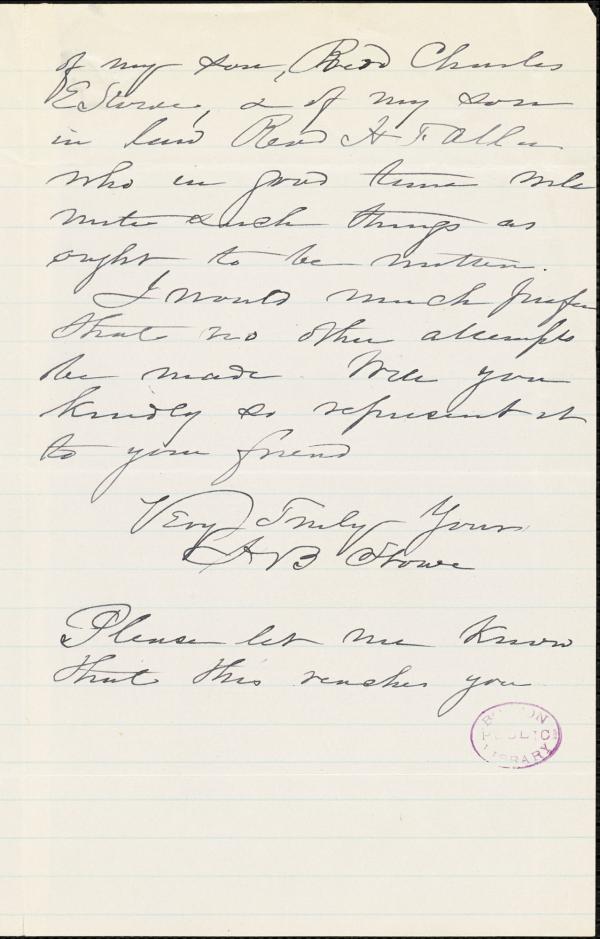 of my son, Revd Charles
E Stowe, & of my son
in law Revd H F Allen
who in good time will
write such things as
ought to be written.
I would much prefer
that no other attempts
be made. Will you
kindly so represent it
to your friend
Very Truly Yours
H B Stowe
Please let me know
that this reaches you
BOSTON
PUBLIC
LIBRARY